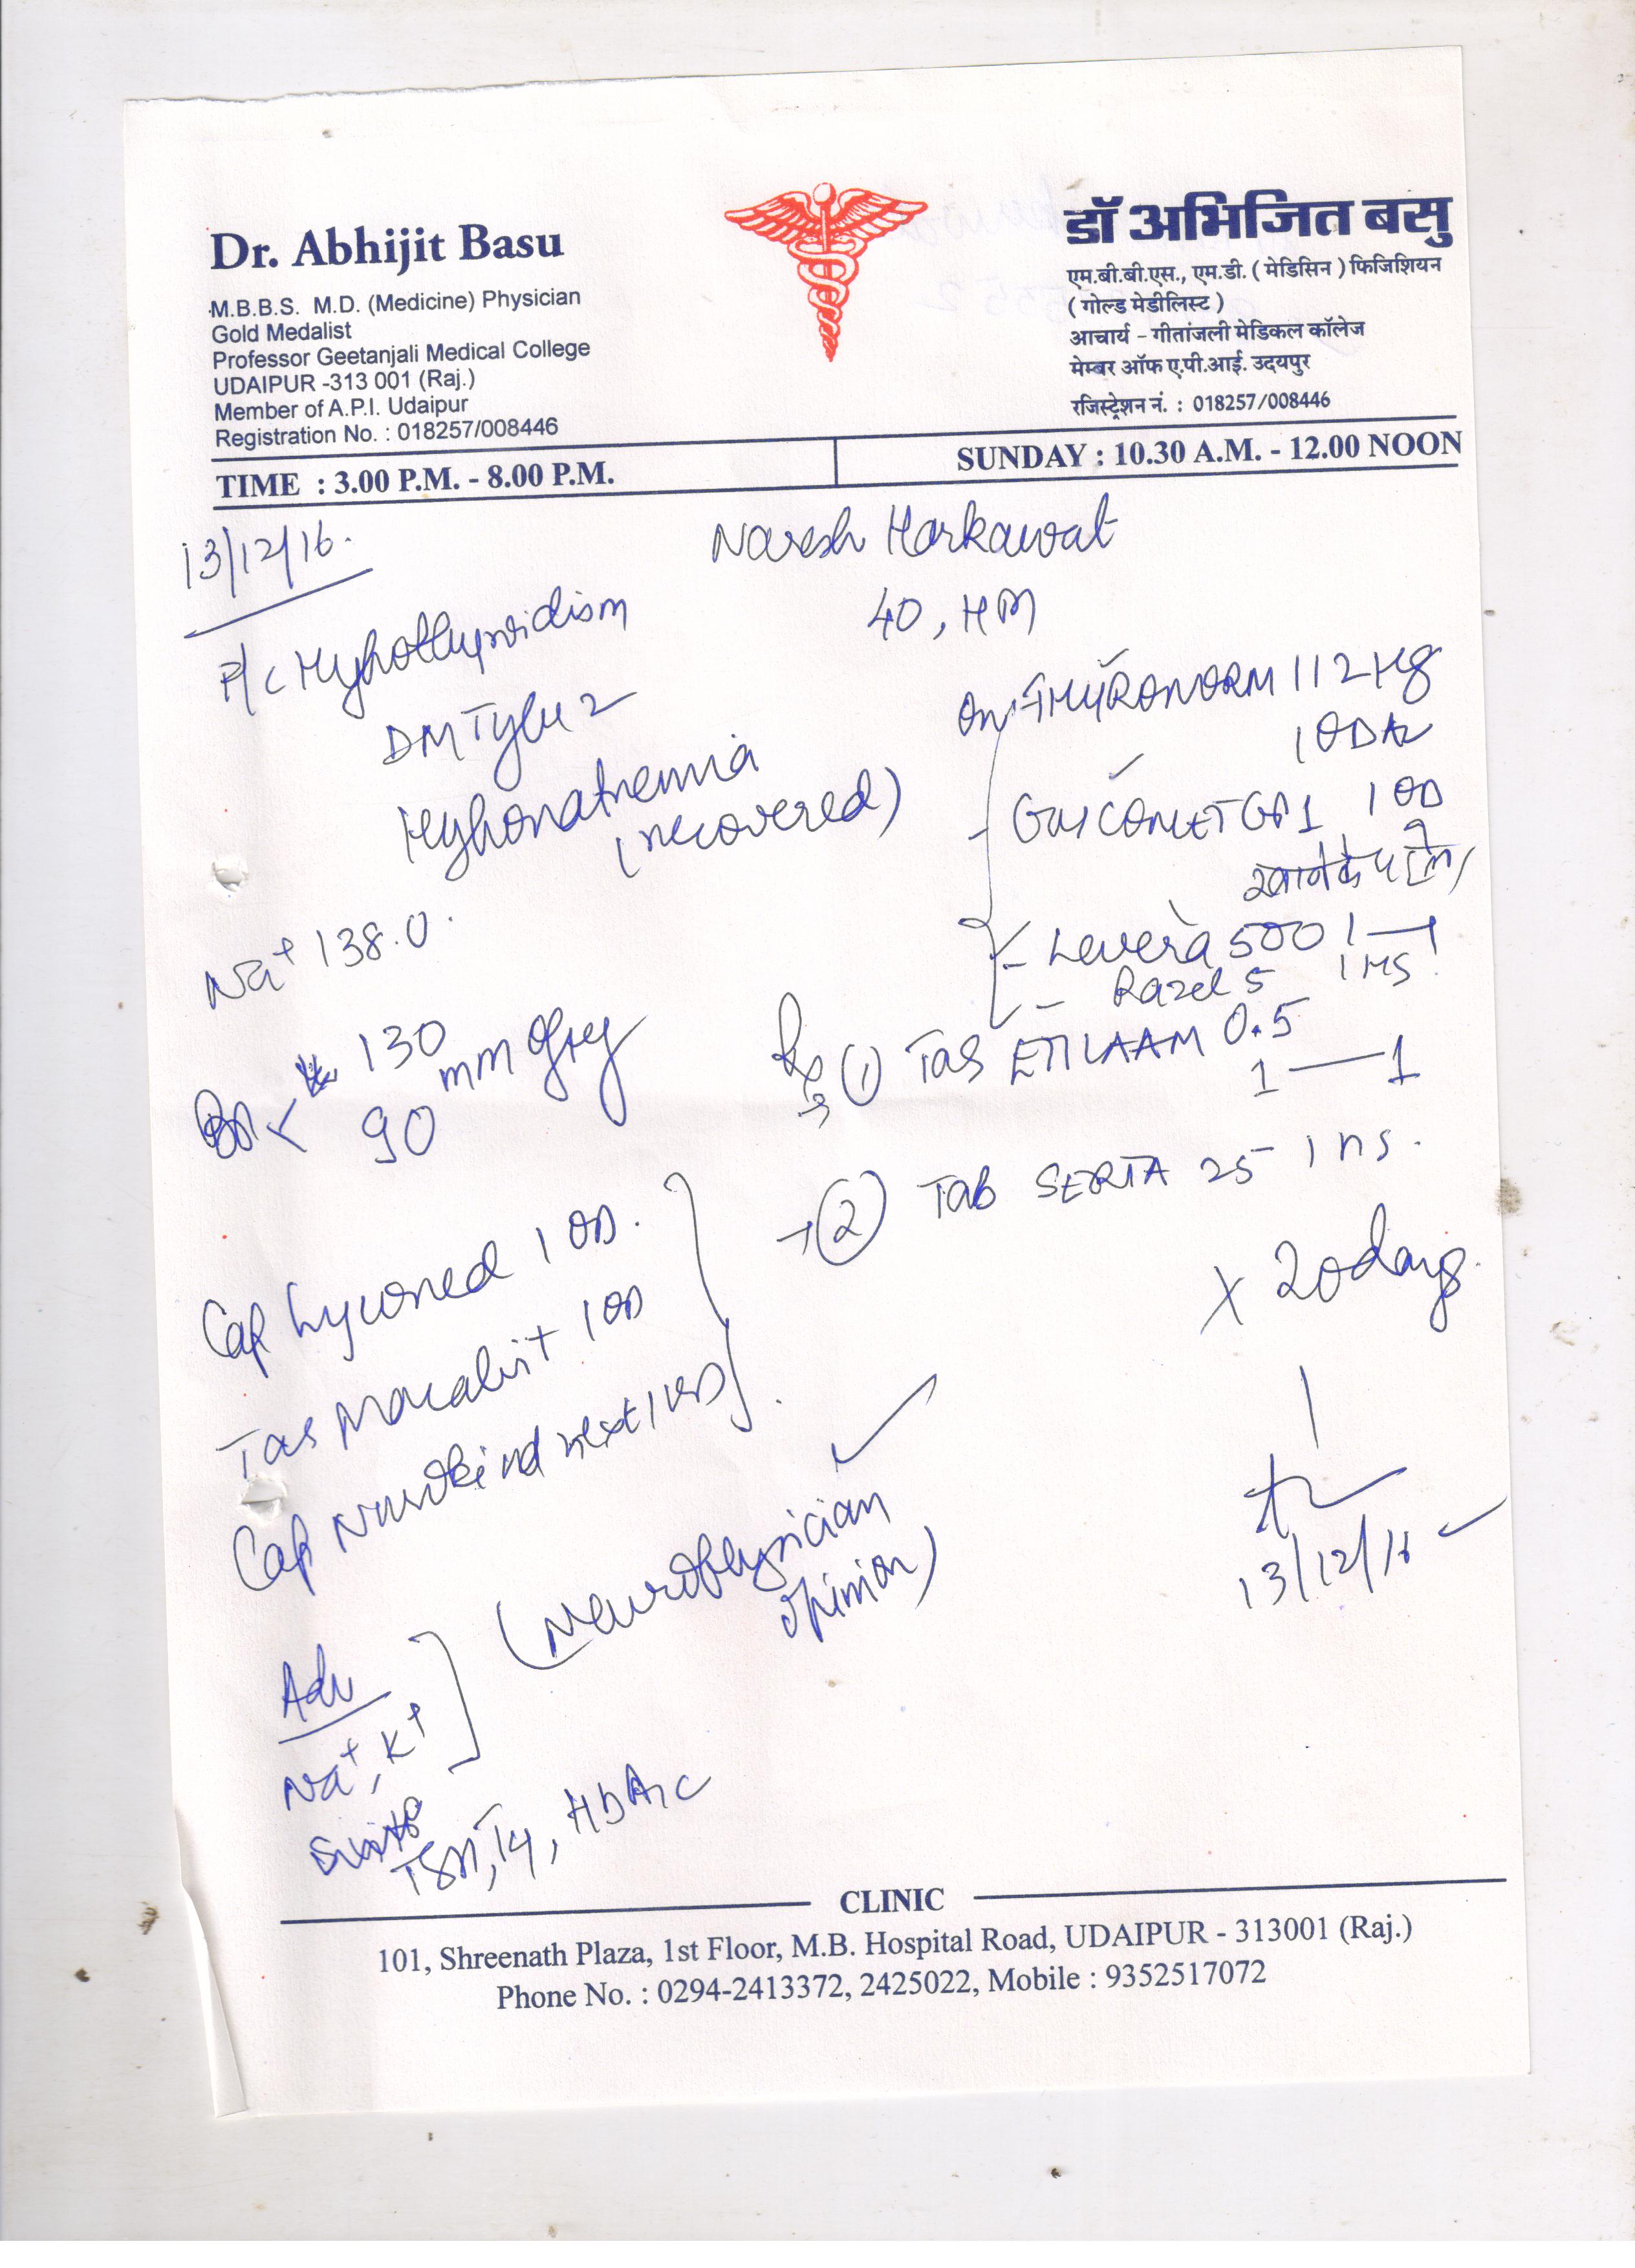 Dr. Abhijit Basu
M.B.B.S. M.D. (Medicine) Physician
Gold Medalist
Professor Geetanjali Medical College
UDAIPUR -313 001 (Raj.)
Member of A.P.I. Udaipur
Registration No. : 018257/008446
डॉ अभिजित बसु
एम.बी.बी.एस., एम.डी. ( मेडिसिन ) फिजिशियन
( गोल्ड मेडीलिस्ट )
आचार्य - गीतांजली मेडिकल कॉलेज
मेम्बर ऑफ ए.पी.आई. उदयपुर
रजिस्ट्रेशन नं. : 018257/008446
TIME : 3.00 P.M. - 8.00 P.M.
SUNDAY : 10.30 A.M. - 12.00 NOON
13/12/16.
Naresh Harkawat
40, HM
Hypothyroidism
DM Type 2
Hyponatremia
(recovered)
Na+ 138.0.
BP 130
90 mm of Hg
Cap Lycored 1 OD.
Tab Macalvit 1 OD
Cap Nurokind next 1 OD
Adv
Na+, K+
TSH, T4, HbA1c
(Neurophysician
opinion)
on THYRONORM 112 μg
1 OD
GLYCOMET GP1 1 OD
खाने के
- Levera 500 1—1
- Razel 5 1 HS
Rx (1) Tab ETILAAM 0.5
1—1
→ (2) Tab SERTA 25 1 HS.
x 20 days.
13/12/16
CLINIC
101, Shreenath Plaza, 1st Floor, M.B. Hospital Road, UDAIPUR - 313001 (Raj.)
Phone No. : 0294-2413372, 2425022, Mobile : 9352517072